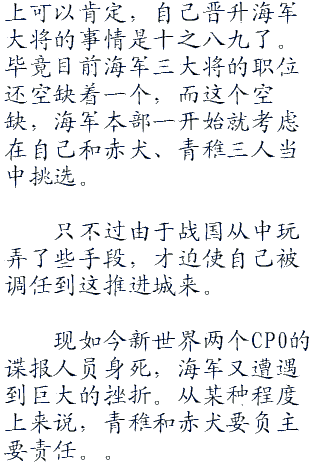 上可以肯定，自己晋升海军
大将的事情是十之八九了。
毕竟目前海军三大将的职位
还空缺着一个，而这个空
缺，海军本部一开始就考虑
在自己和赤犬、青稚三人当
中挑选。
只不过由于战国从中玩
弄了些手段，才迫使自己被
调任到这推进城来。
现如今新世界两个CP0的
谍报人员身死，海军又遭遇
到巨大的挫折。从某种程度
上来说，青稚和赤犬要负主
要责任。。